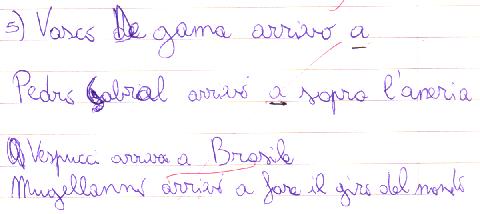 5) Vasco De gama arrivò a
Pedro Cabral arrivò a sopra l'aneria
Vespucci arriva a Brasile
Mugellanno arrivò a fare il giro del mondo